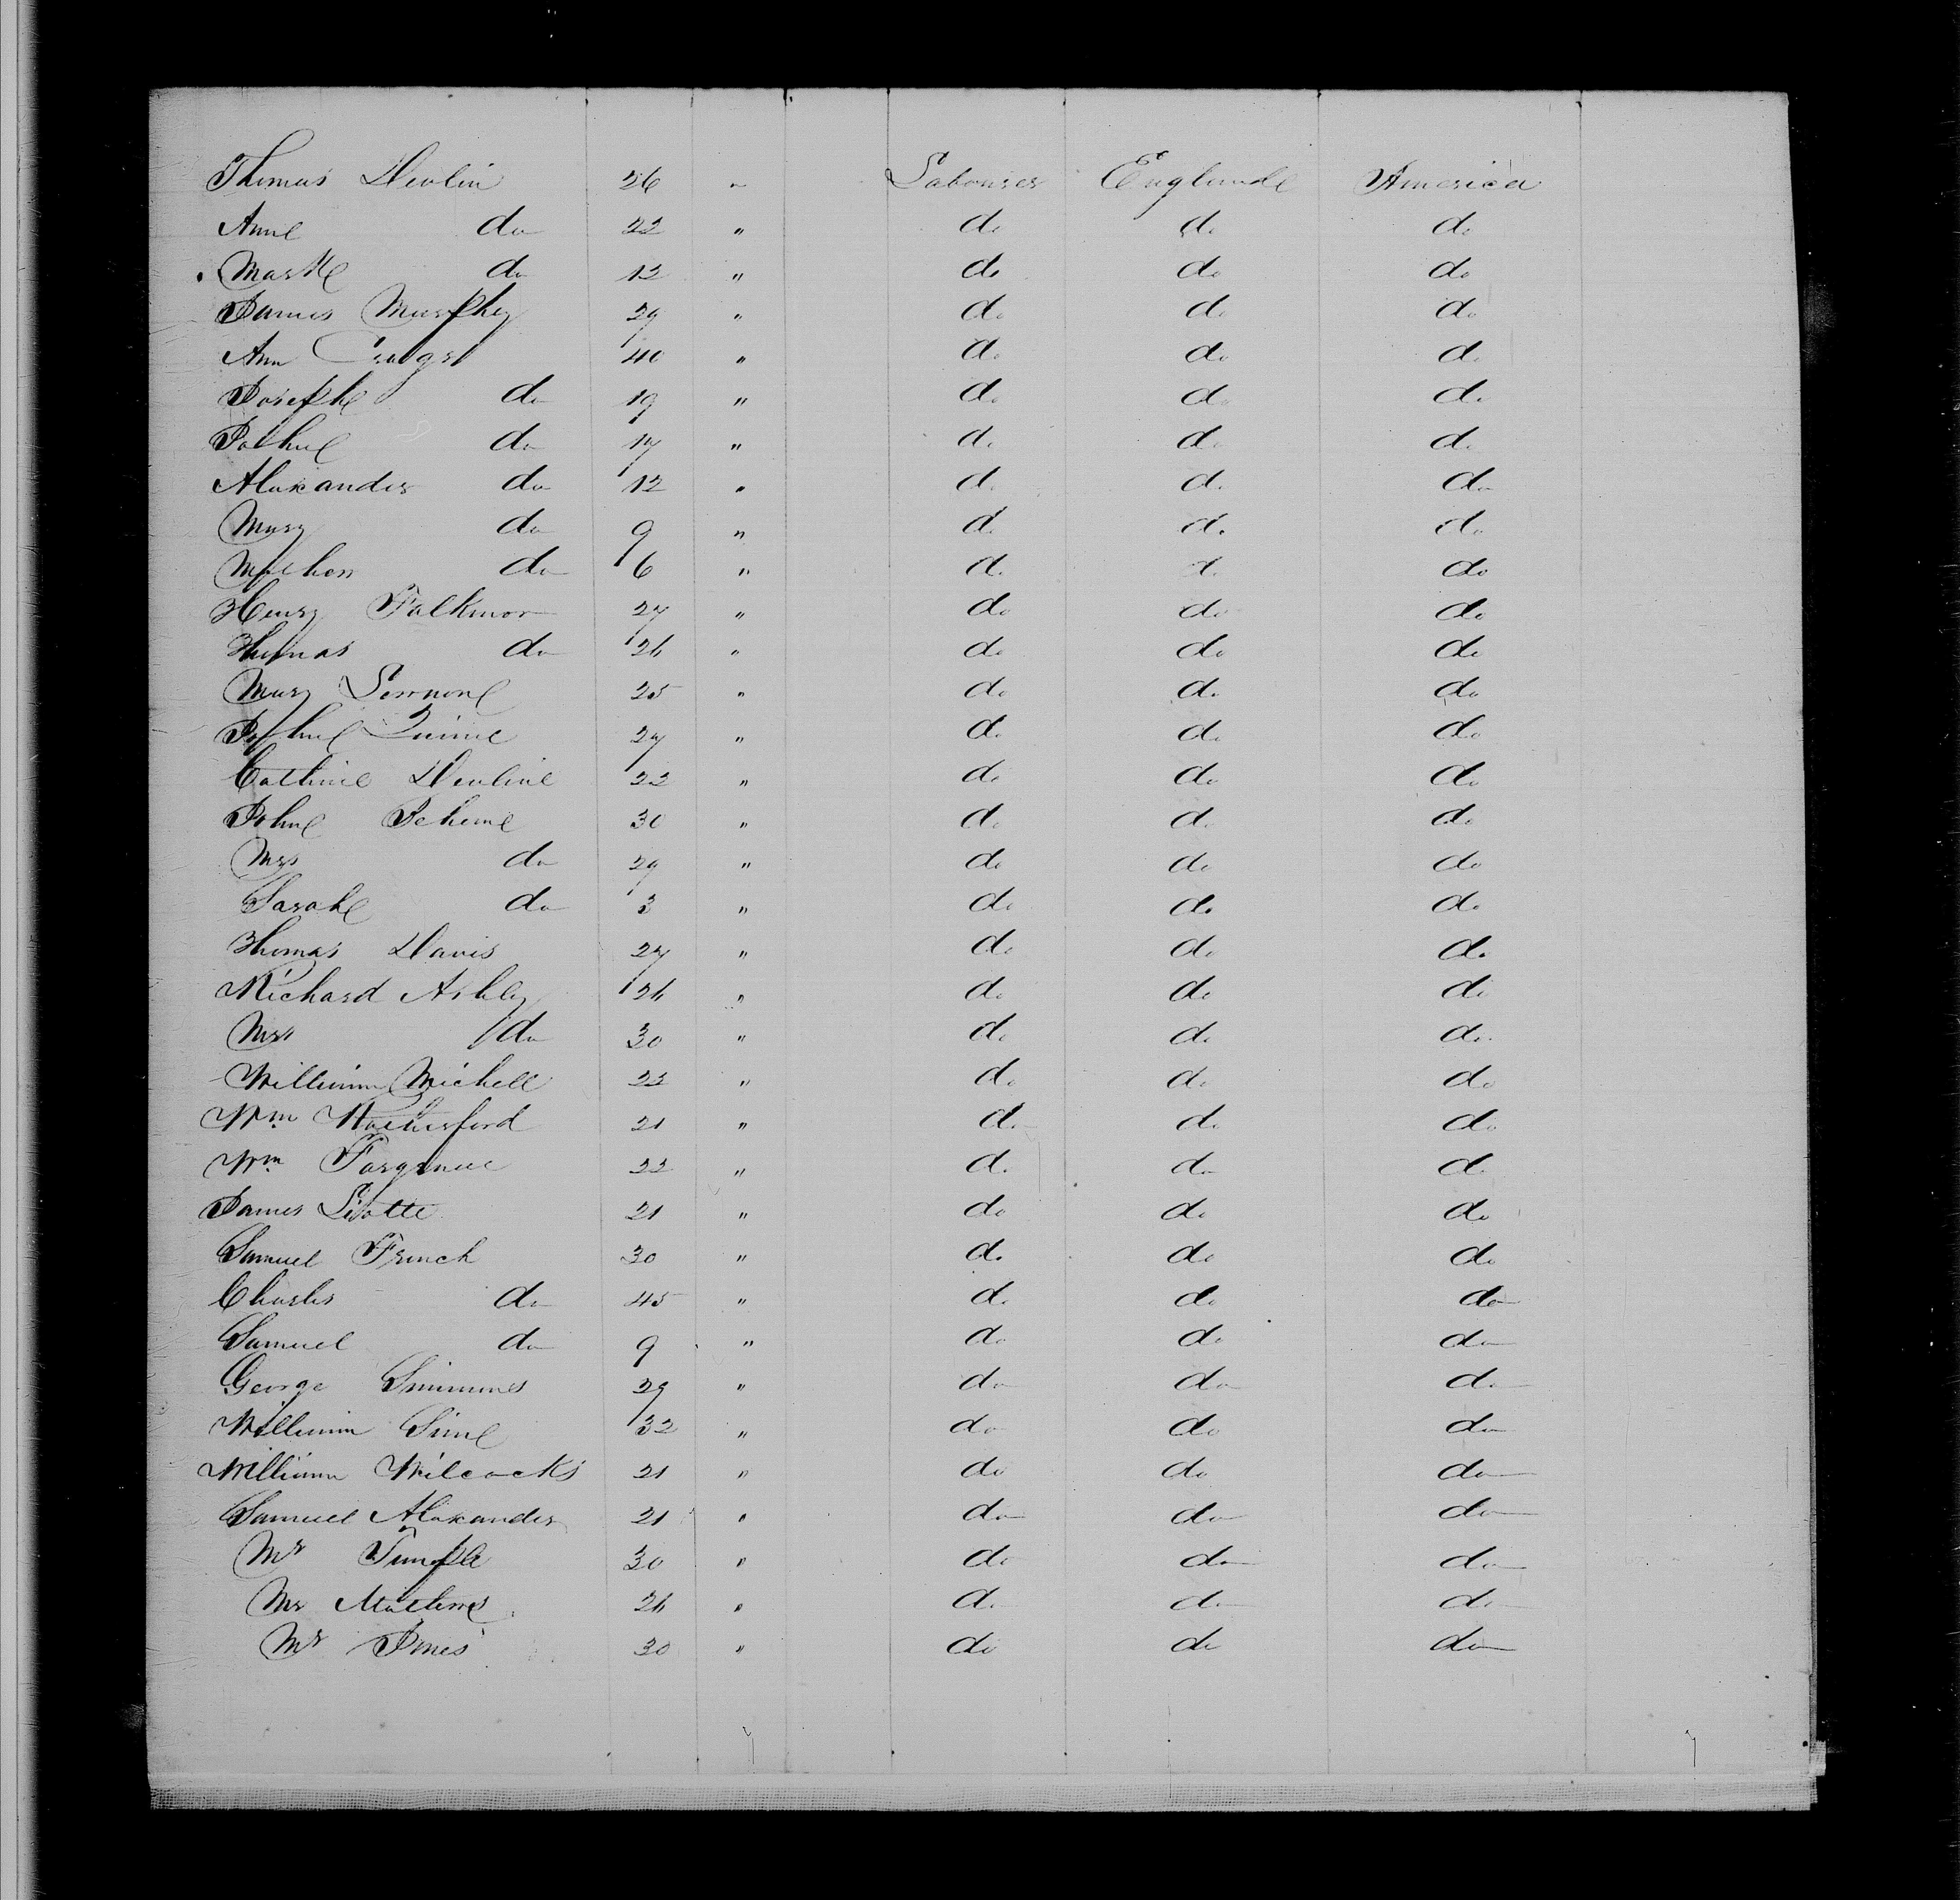 Thomas Devlin 26 " Labourer England America
Anne do 22 " do do do
Mark do 12 " do do do
James Murphey 29 " do do do
Ann 40 " do do do
Joseph do 19 " do do do
John do 17 " do do do
Alaxander do 12 " do do do
Mary do 9 " do do do
do 6 " do do do
Henry Falkinor 27 " do do do
Thomas do 26 " do do do
Mary 25 " do do do
John Quinne 27 " do do do
Cathrine Devline 22 " do do do
John 30 " do do do
Mrs do 29 " do do do
Sarah do 3 " do do do
Thomas Davis 27 " do do do
Richard Ashley 26 " do do do
Mrs do 30 " do do do
William Michell 22 " do do do
Wm 21 " do do do
Wm 22 " do do do
James 21 " do do do
Samuel French 30 " do do do
Charles do 45 " do do do
Samuel do 9 " do do do
George Simmines 29 " do do do
William Sime 32 " do do do
William Wilcocks 21 " do do do
Samuel Alaxander 21 " do do do
Mr 30 " do do do
Mr 26 " do do do
Mr Jones 30 " do do do